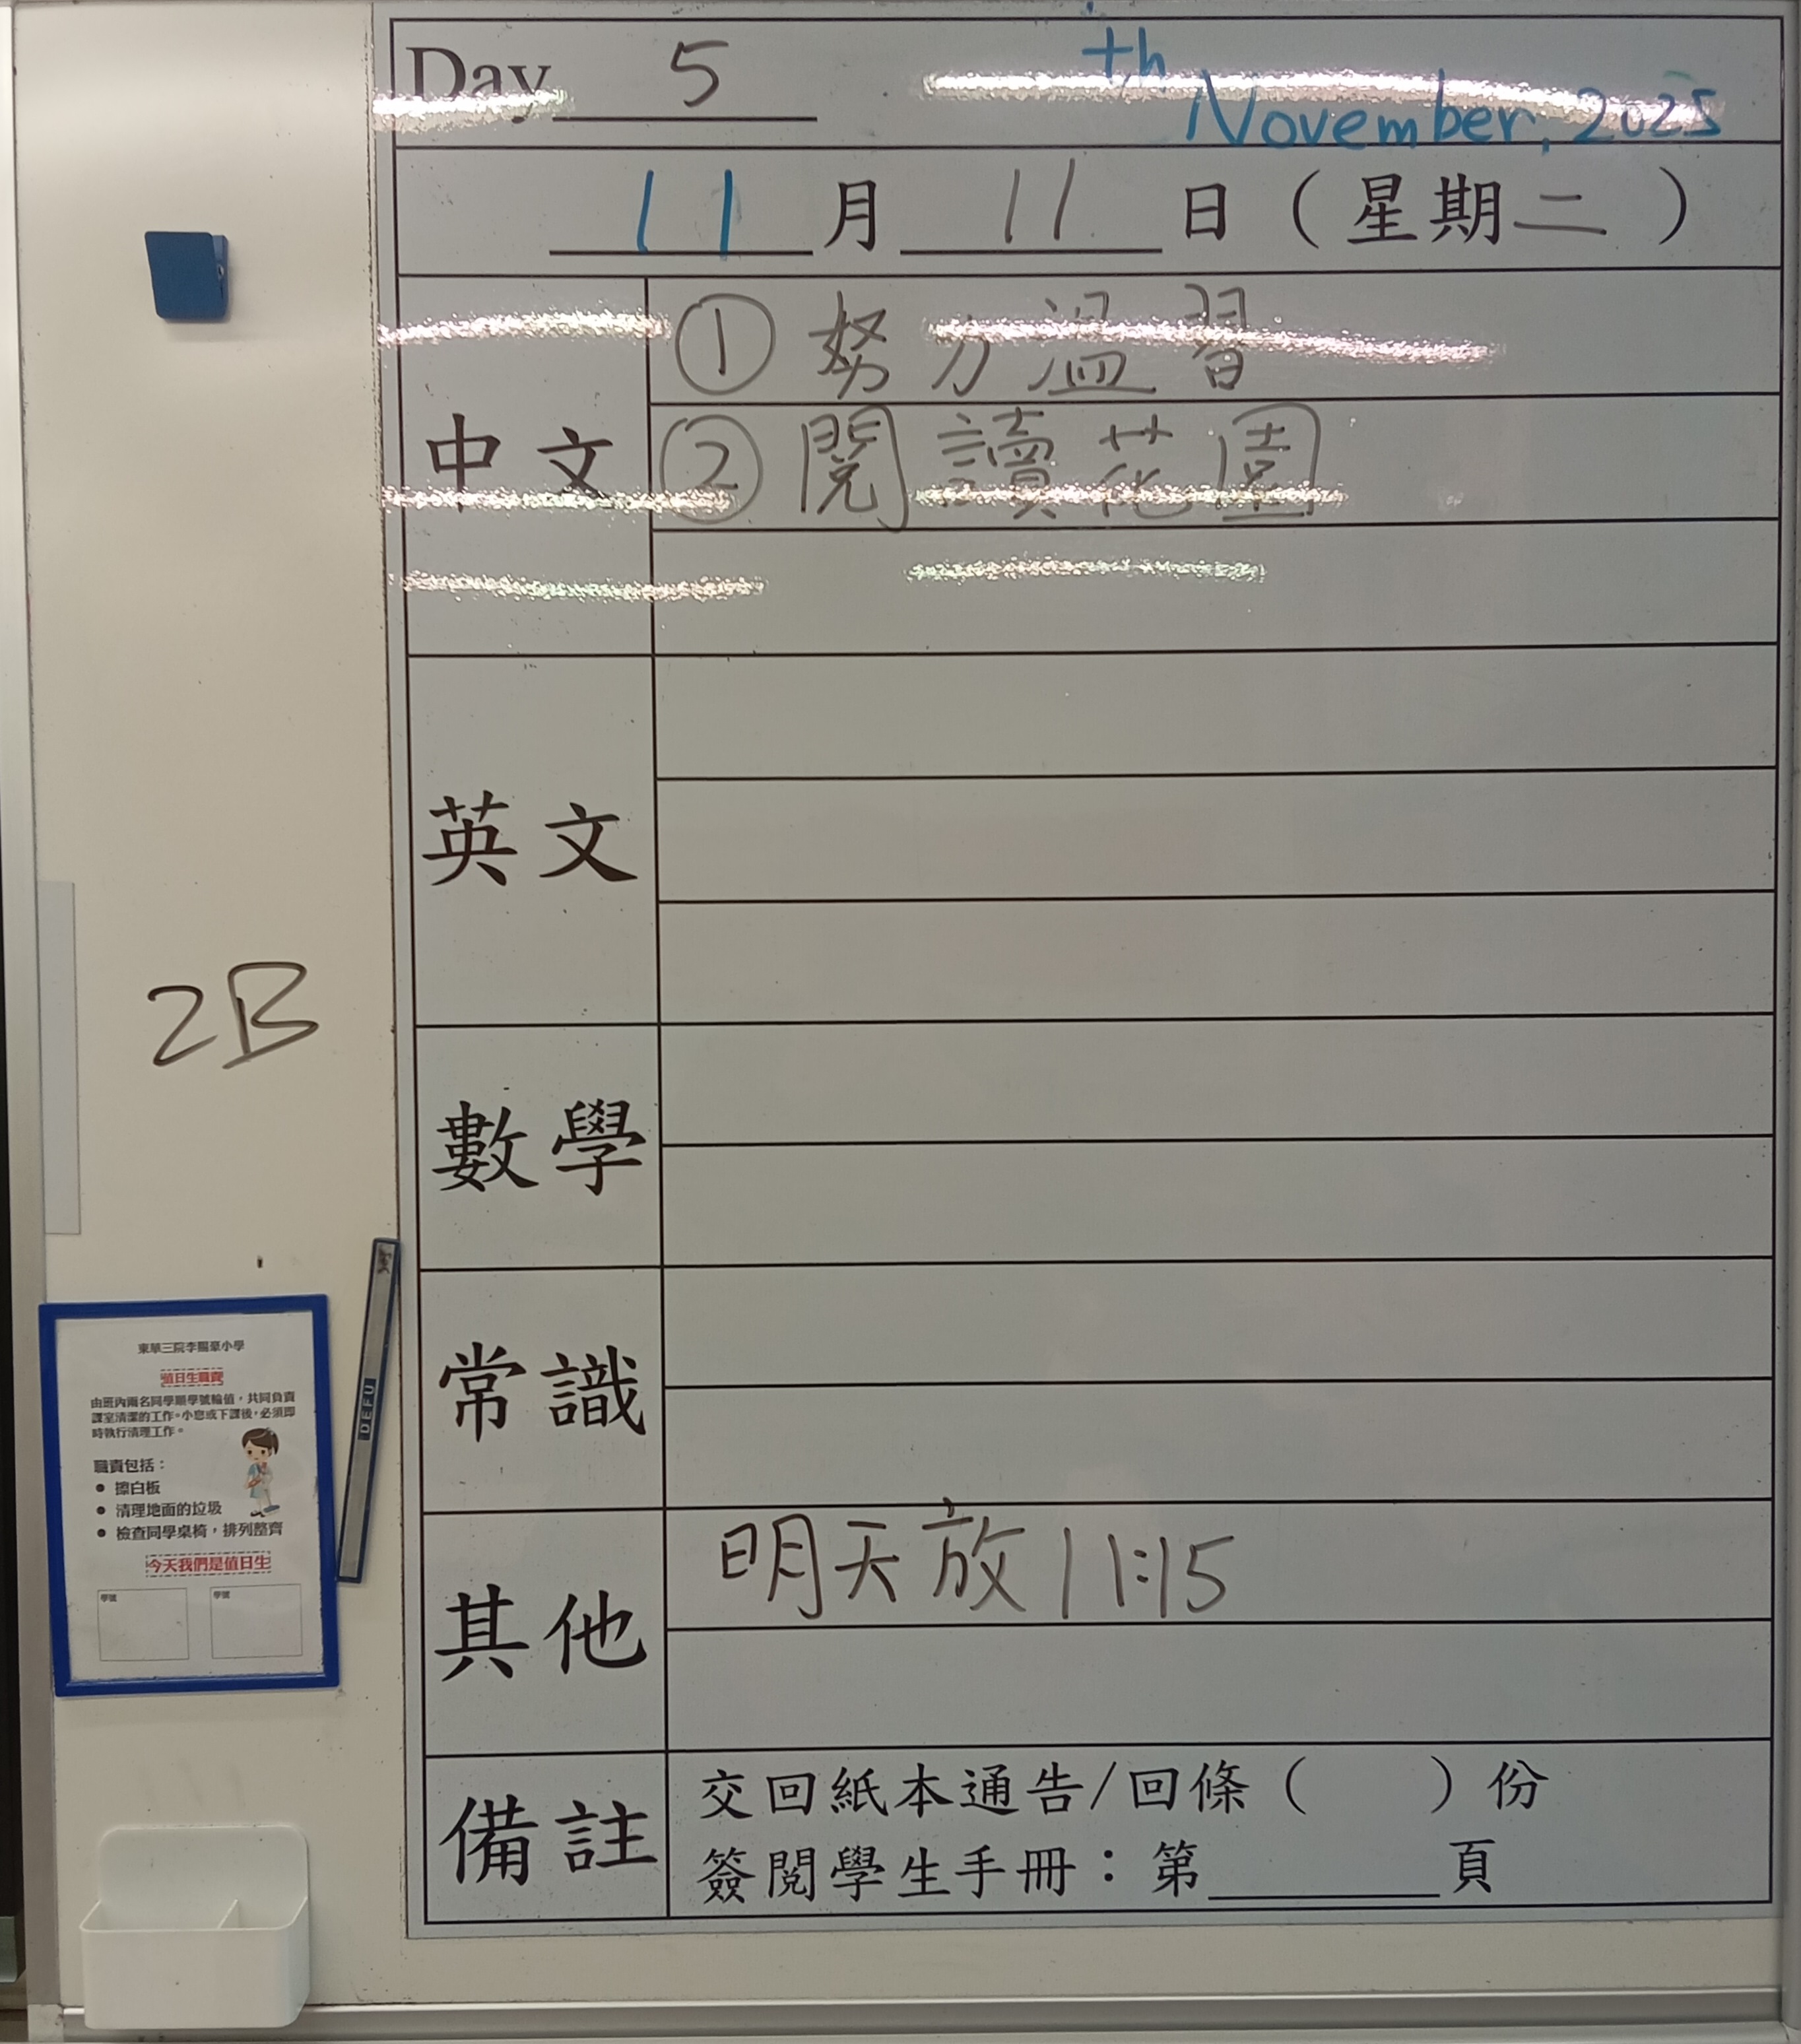 Day 5
th
November, 2025
11 月 11 日 ( 星期二 )
中文
① 努力溫習
② 閱讀花園
英文
數學
常識
其他
明天放 11:15
備註
交回紙本通告/回條 ( ) 份
簽閱學生手冊：第 頁
2B
DEFU
東華三院李賜豪小學
值日生職責
由班內兩名同學順學號輪值，共同負責
課室清潔的工作。小息或下課後，必須即
時執行清理工作。
職責包括：
● 擦白板
● 清理地面的垃圾
● 檢查同學桌椅，排列整齊
今天我們是值日生
學號 學號